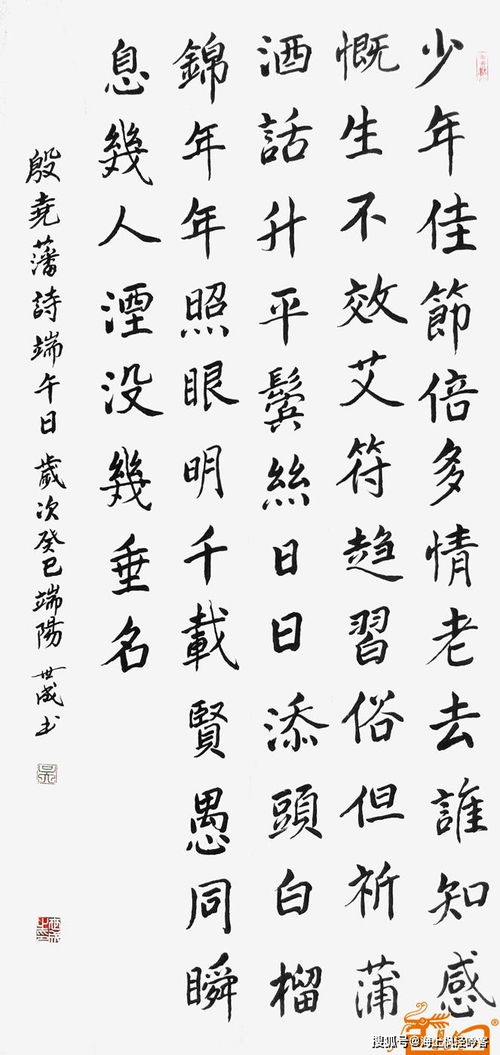 少年佳節倍多情老去誰知感
慨生不效艾符趋習俗但祈蒲
酒話升平鬓絲日日添頭白榴
錦年年照眼明千載賢愚同瞬
息幾人湮没幾垂名
殷堯藩詩端午日 歲次癸巳端陽 世成书
搜狐号@海上枫泾吟客